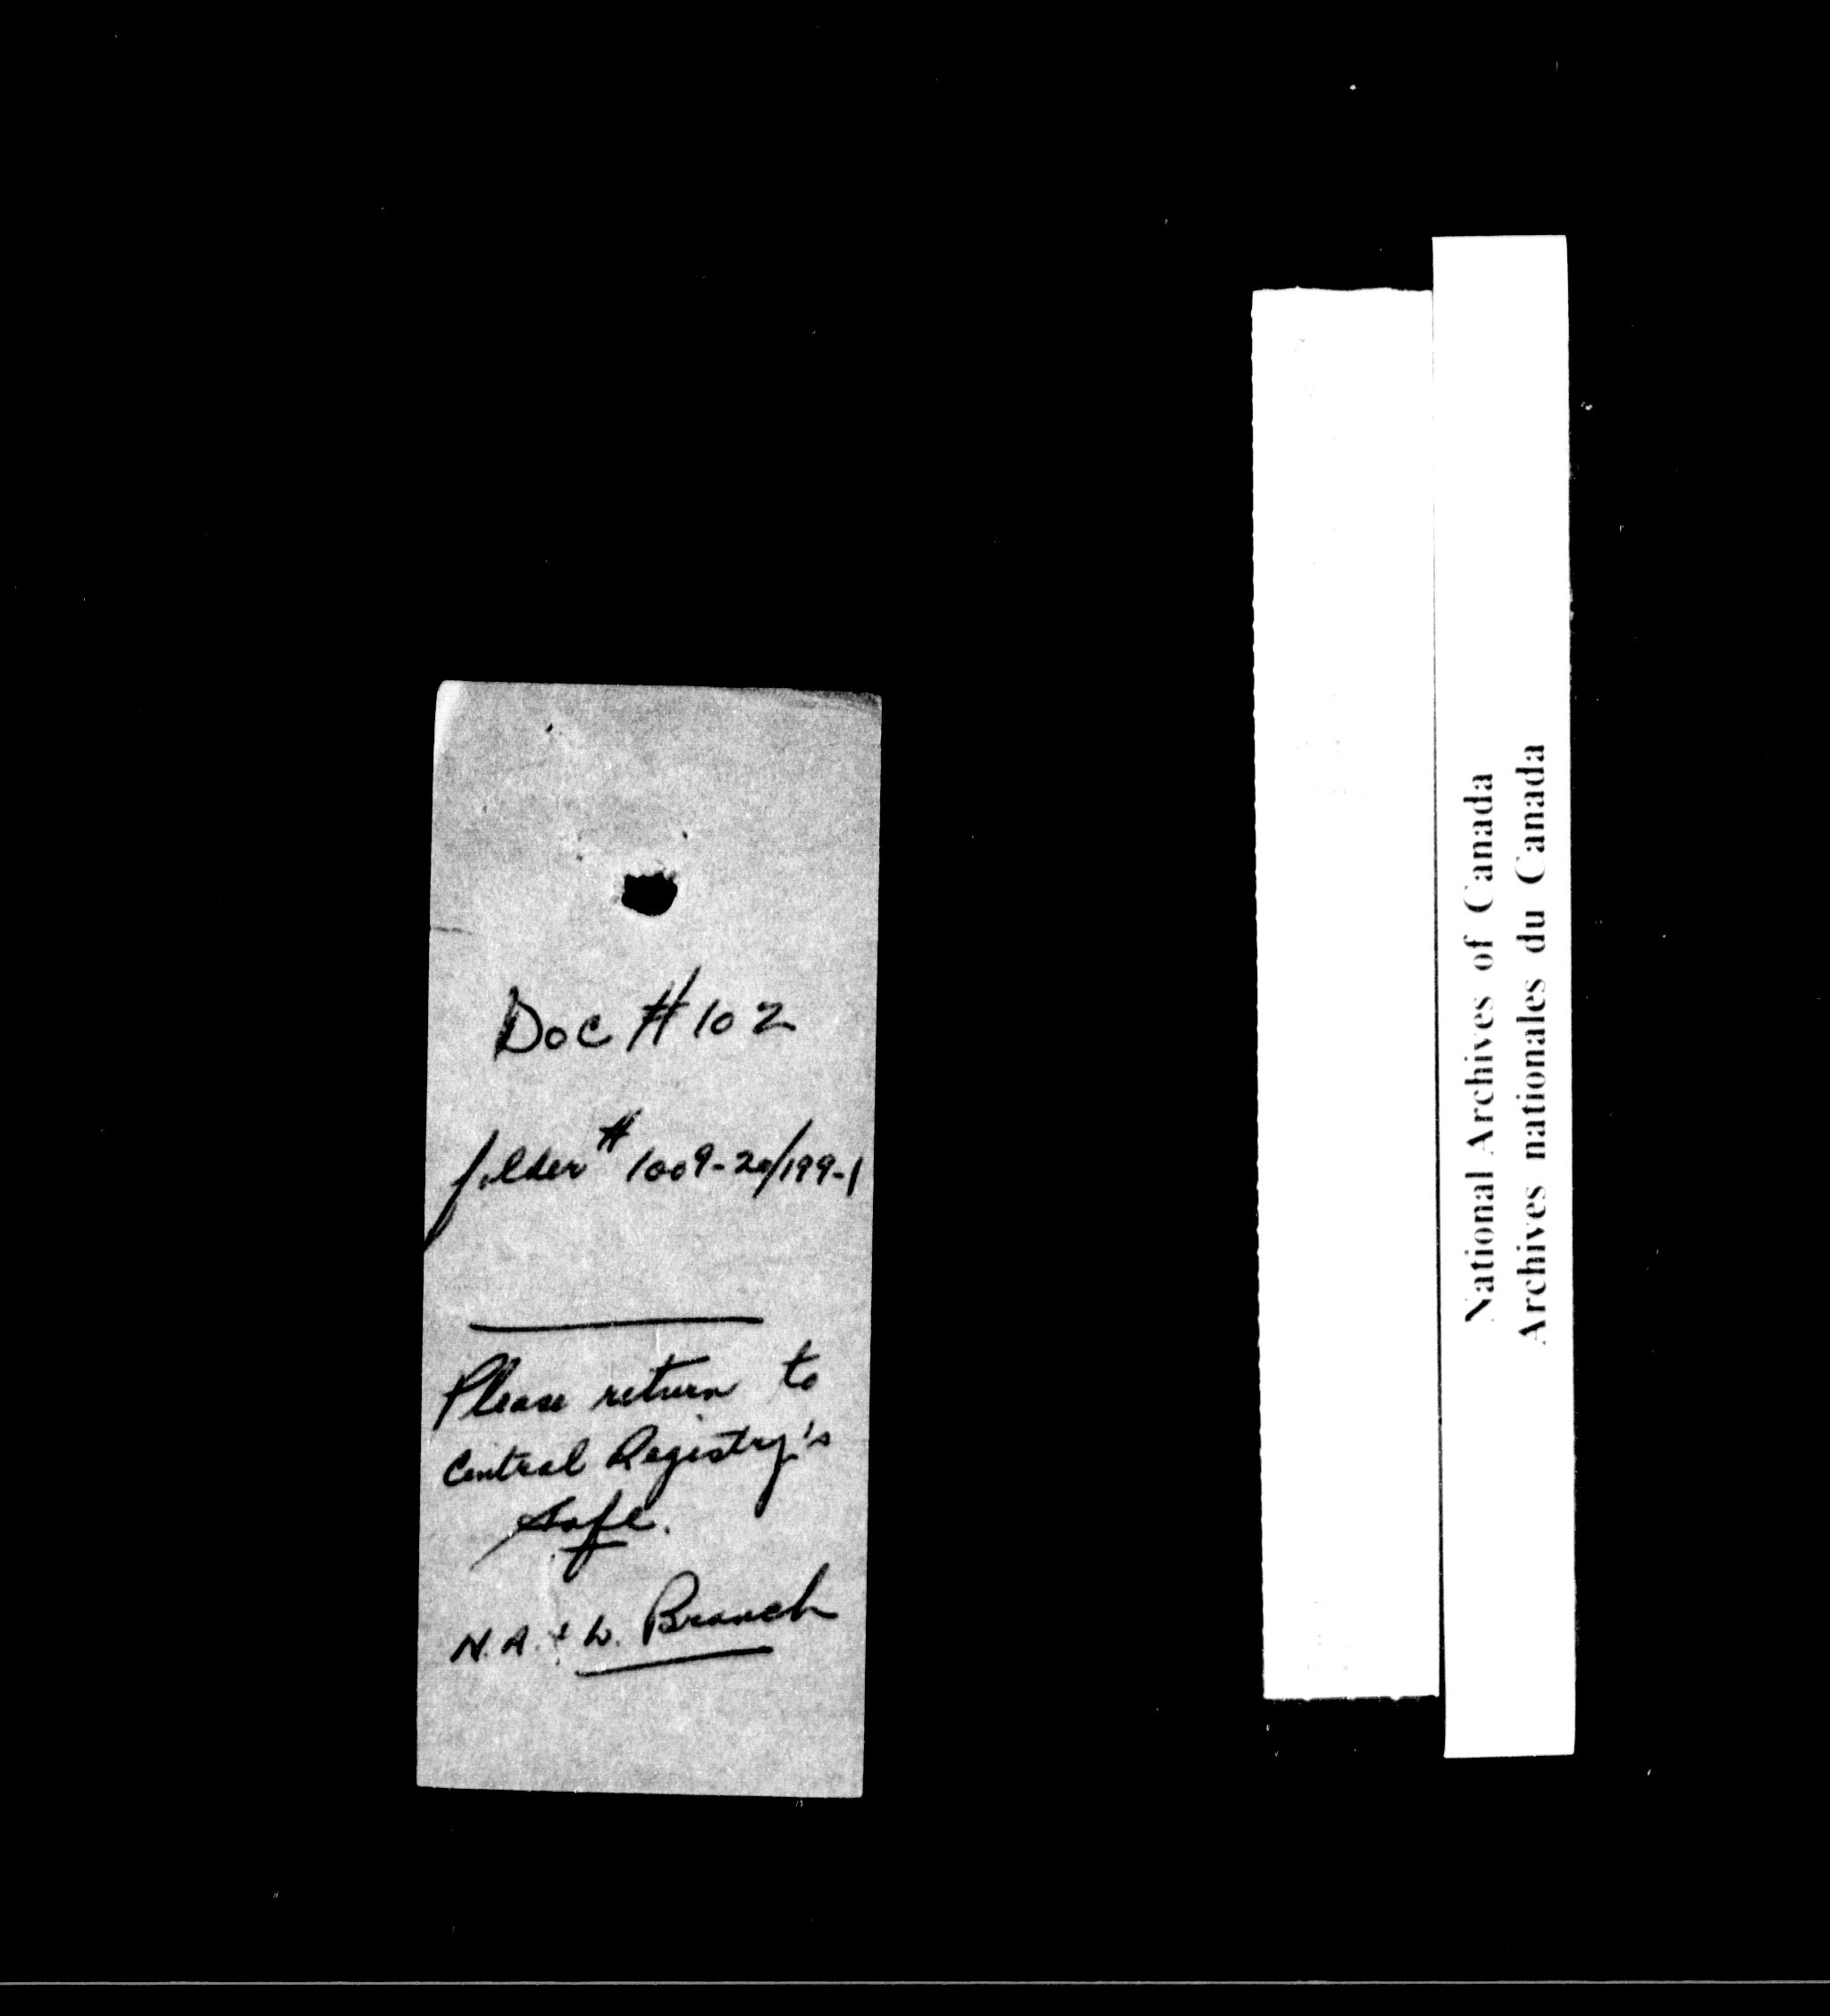 Doc # 102
folder # 1009-20/199-1
Please return to
Central Registry's
safe.
N.A. & L. Branch
National Archives of Canada
Archives nationales du Canada